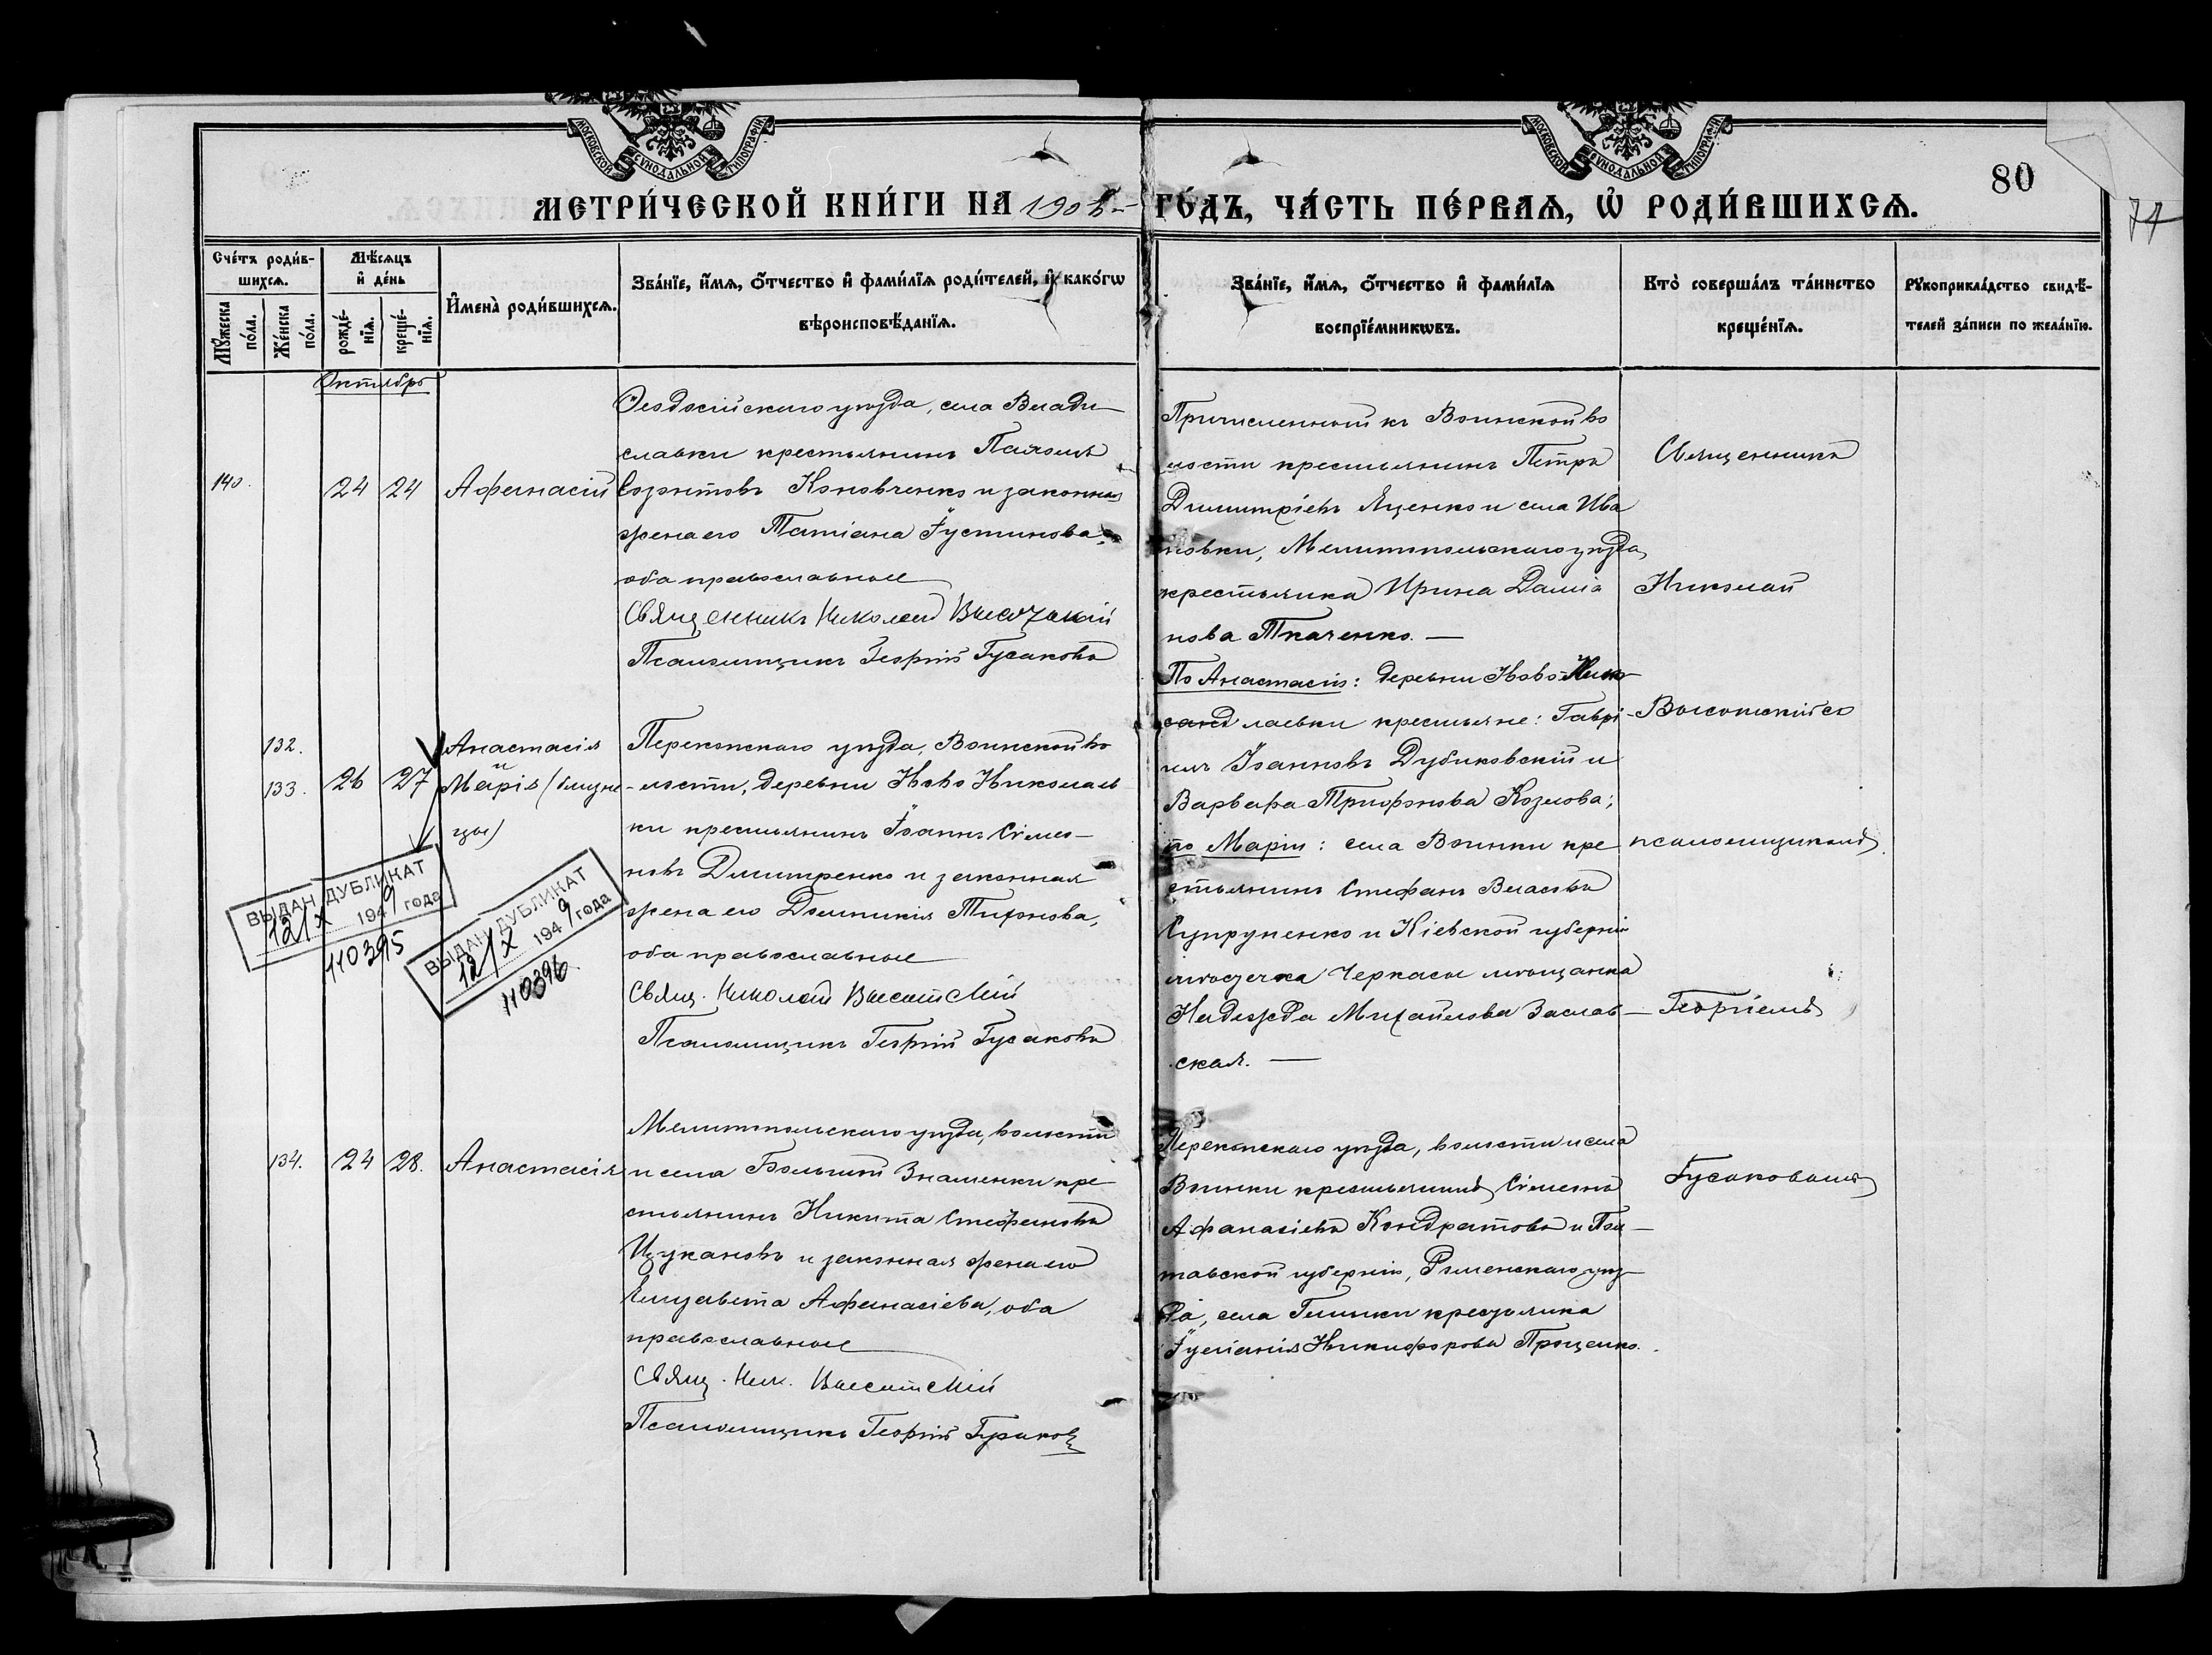 МОСКОВСКОЙ СѴНОДАЛЬНОЙ ТИПОГРАФІИ
МОСКОВСКОЙ СѴНОДАЛЬНОЙ ТИПОГРАФІИ
80
74
МЕТРИ́ЧЕСКОЙ КНИ́ГИ НА 1908 ГО́ДЪ, ЧА́СТЬ ПЕ́РВАѦ, Ѡ҆ РОДИ́ВШИХСѦ.
Счéтъ роди́в-
шихсѧ.
Мꙋ́жеска по́ла.
Же́нска по́ла.
Мѣ́сѧцъ
и҆ де́нь
рожде́-
нїѧ.
креще́-
нїѧ.
И҆мена̀ роди́вшихсѧ.
Зва́нїе, и҆́мѧ, ѻ҆́тчество и҆ фами́лїѧ роди́телей, и҆ како́гѡ
вѣроисповѣ́данїѧ.
Зва́нїе, и҆́мѧ, ѻ҆́тчество и҆ фами́лїѧ
воспрїе́мникѡвъ.
Кто̀ соверша́лъ та́инство
креще́нїѧ.
Рꙋкоприкла́дство свидѣ́-
телей за́писи по жела́нїю.
Октябрь
140.
24
24
Афанасій
Ѳеодосійскаго уѣзда, села Влади-
славки крестьянинъ Павелъ
Созонтовъ Коновченко и законная
жена его Татіана Іустинова,
оба православные
Священникъ Николай Высотскій
Псаломщикъ Георгій Гусаковъ
Причисленный къ Воинской во
лости крестьянинъ Петръ
Димитріевъ Яценко и села Ива
новки, Мелитопольскаго уѣзда,
крестьянка Ирина Даміа
нова Ткаченко. —
132.
133.
26
27
Анастасія
и
Марія (близне-
цы)
Перекопскаго уѣзда, Воинской во
лости, деревни Ново Николаев
ки крестьянинъ Іоаннъ Симео-
новъ Дмитренко и законная
жена его Домникія Тихонова,
оба православные
Свящ. Николай Высотскій
Псаломщикъ Георгій Гусаковъ
По Анастасіи: деревни Ново-Нико
лаевки крестьяне: Гаврі-
илъ Іоанновъ Дубиковскій и
Варвара Трифонова Козлова;
по Маріи: села Воинки кре
стьянинъ Стефанъ Власовъ
Супруненко и Кіевской губерніи
мѣстечка Черкасы мѣщанка
Надежда Михайлова Заслав-
ская. —
ВЫДАН ДУБЛИКАТ
12/X 1949 года
110395
ВЫДАН ДУБЛИКАТ
12/X 1949 года
110396
134.
24
28.
Анастасія
Мелитопольскаго уѣзда, волости
и села Большой Знаменки кре
стьянинъ Никита Стефановъ
Цукановъ и законная жена его
Елисавета Афанасіева, оба
православные
Свящ. Ник. Высотскій
Псаломщикъ Георгій Гусаковъ
Перекопскаго уѣзда, волости и села
Воинки крестьянинъ Симеонъ
Афанасіевъ Кондратовъ и Пол-
тавской губерніи, Роменскаго уѣз-
да, села Глинки крестьянка
Іуліанія Никифорова Проценко.
Священникъ
Николай
Высотскій съ
псаломщикомъ
Георгіемъ
Гусаковымъ